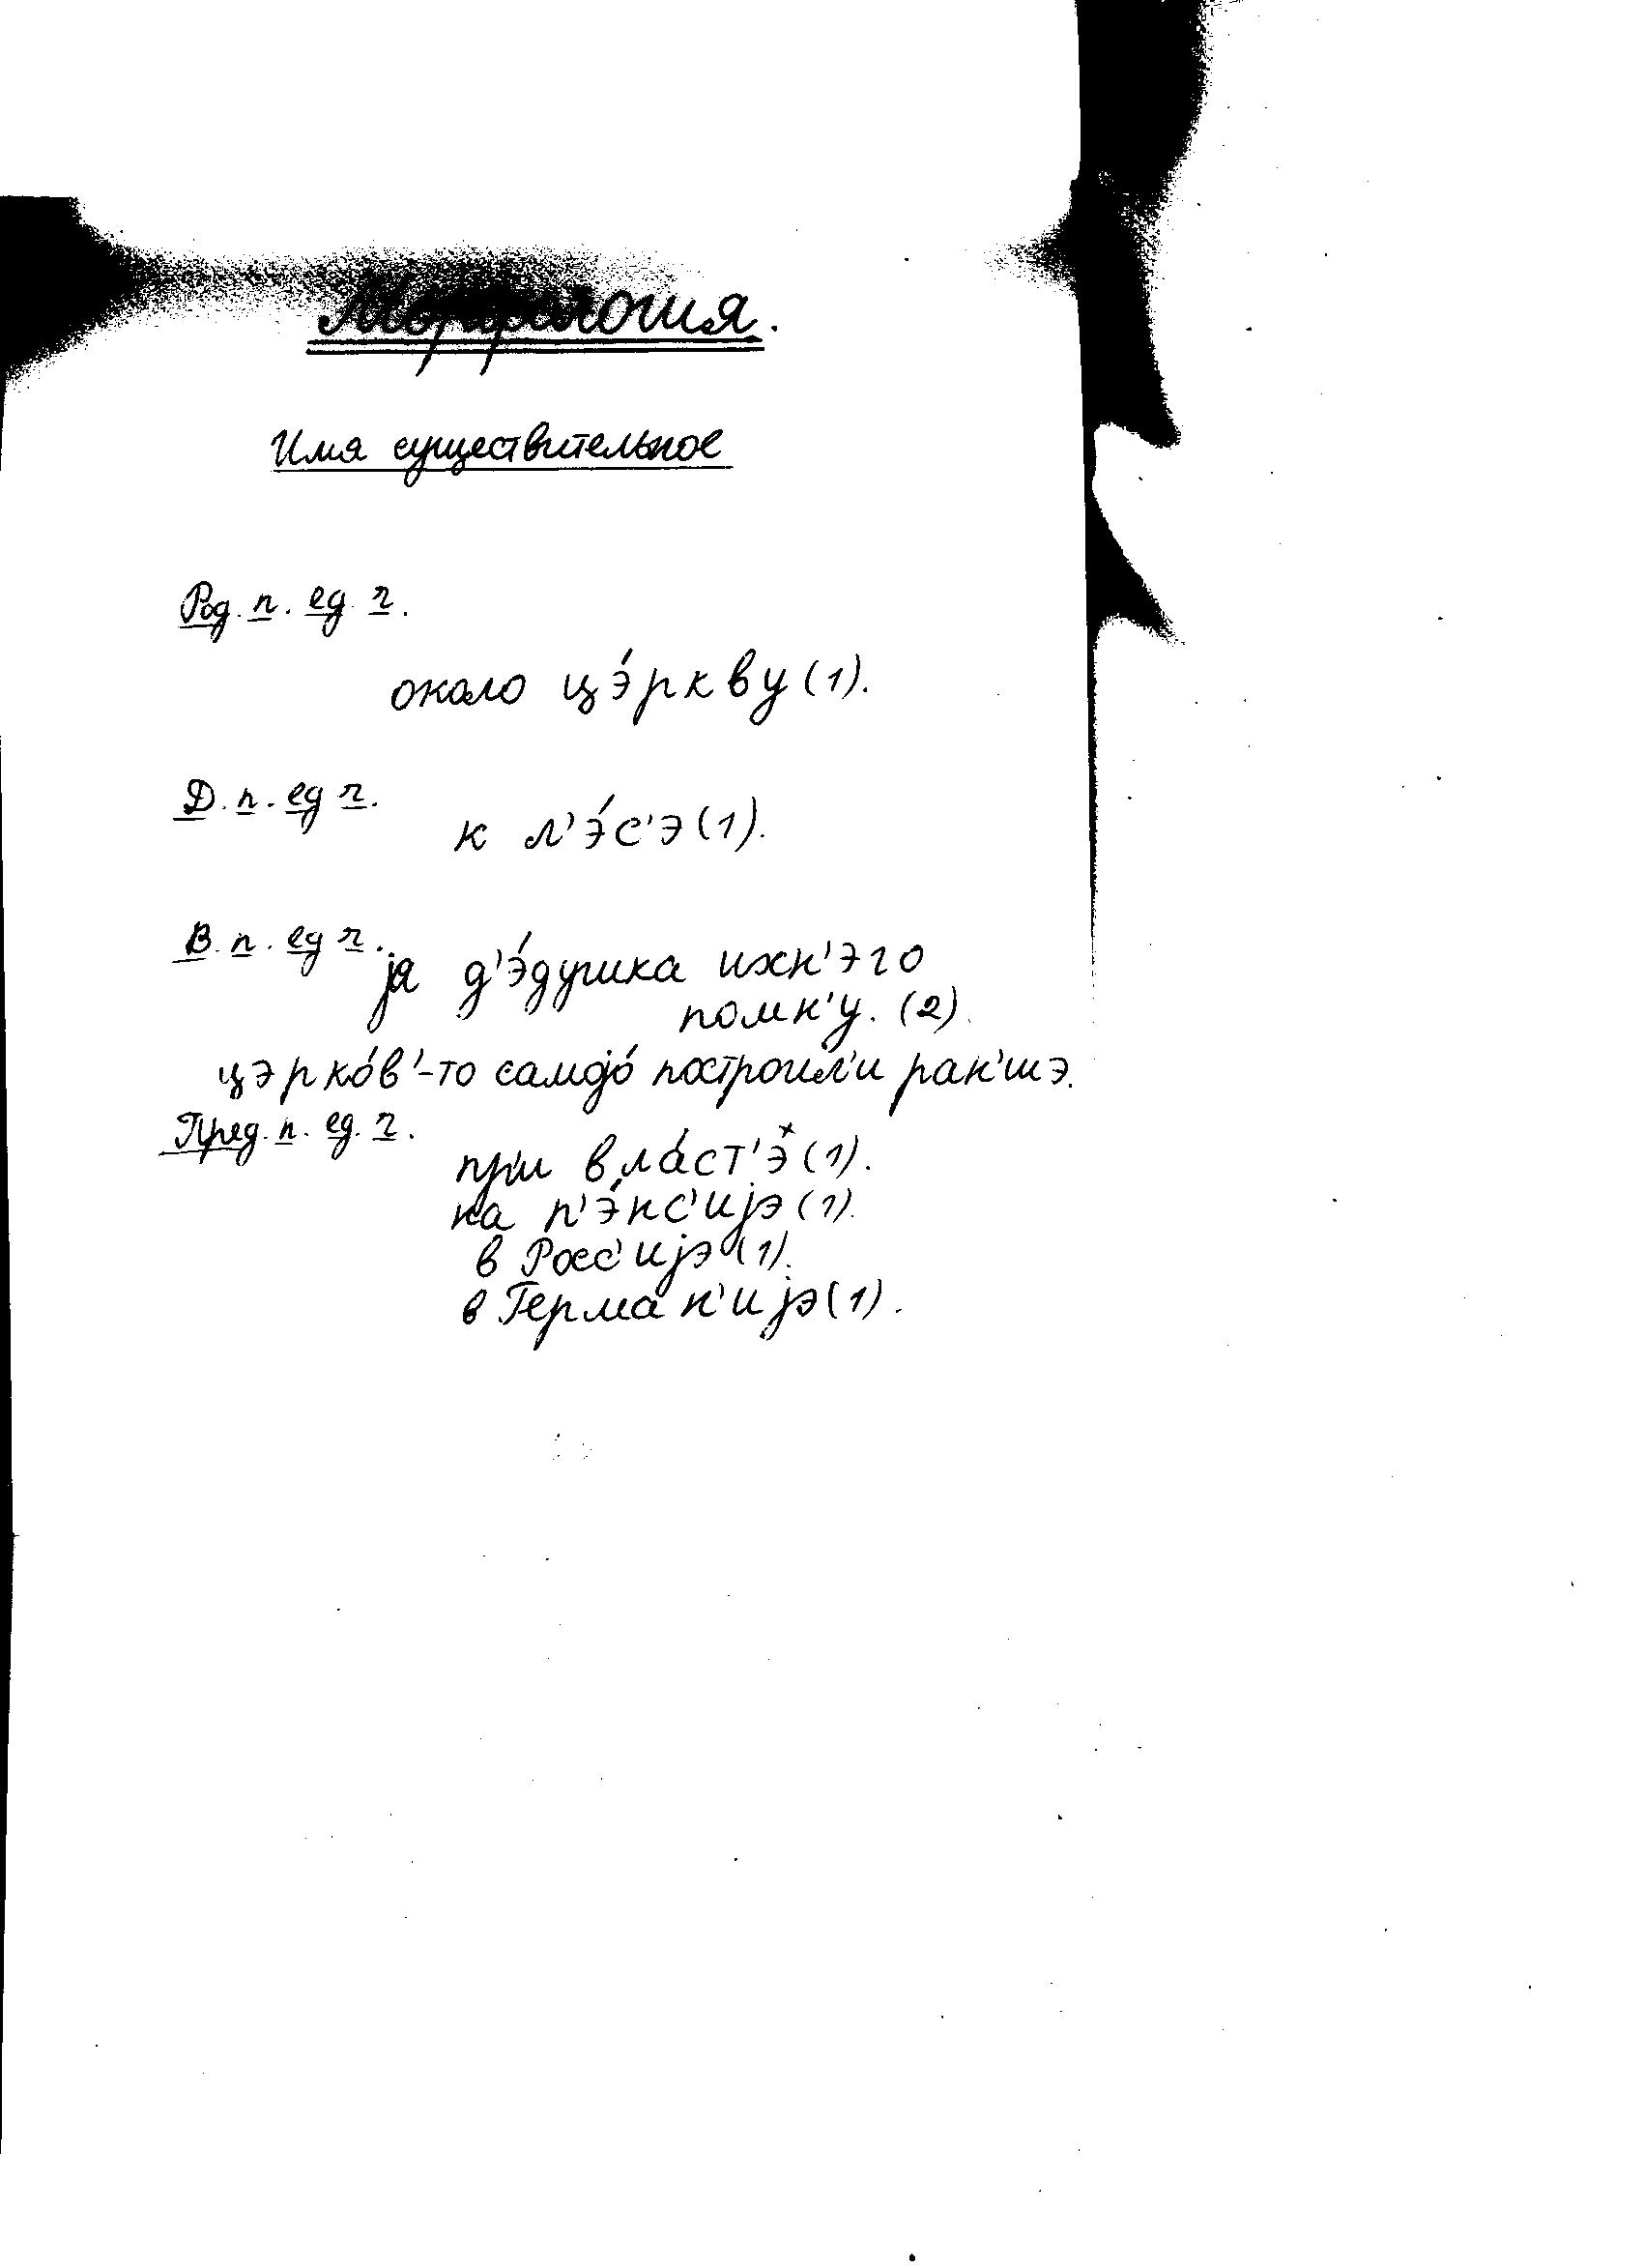 Морфология.
Имя существительное
Род. п. ед. ч.
около цэ́ркву (1).
Д. п. ед ч.
к л'э́с'э (1).
В. п. ед ч.
jа д'э́душка ихн'эго
помн'у. (2).
цэрко́в'-то самоjо́ построил'и ран'шэ.
Пред. п. ед. ч.
пр'и вла́ст'э̽ (1).
на п'э́нс'иjэ (1).
в Росс'иjэ (1).
в Герман'иjэ (1).